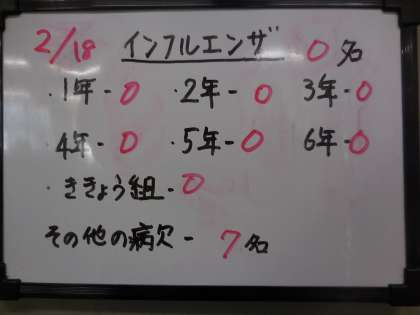 2/18 インフルエンザ 0名
・1年-0 ・2年-0 3年-0
・4年-0 ・5年-0 6年-0
・ききょう組-0
その他の病欠-7名